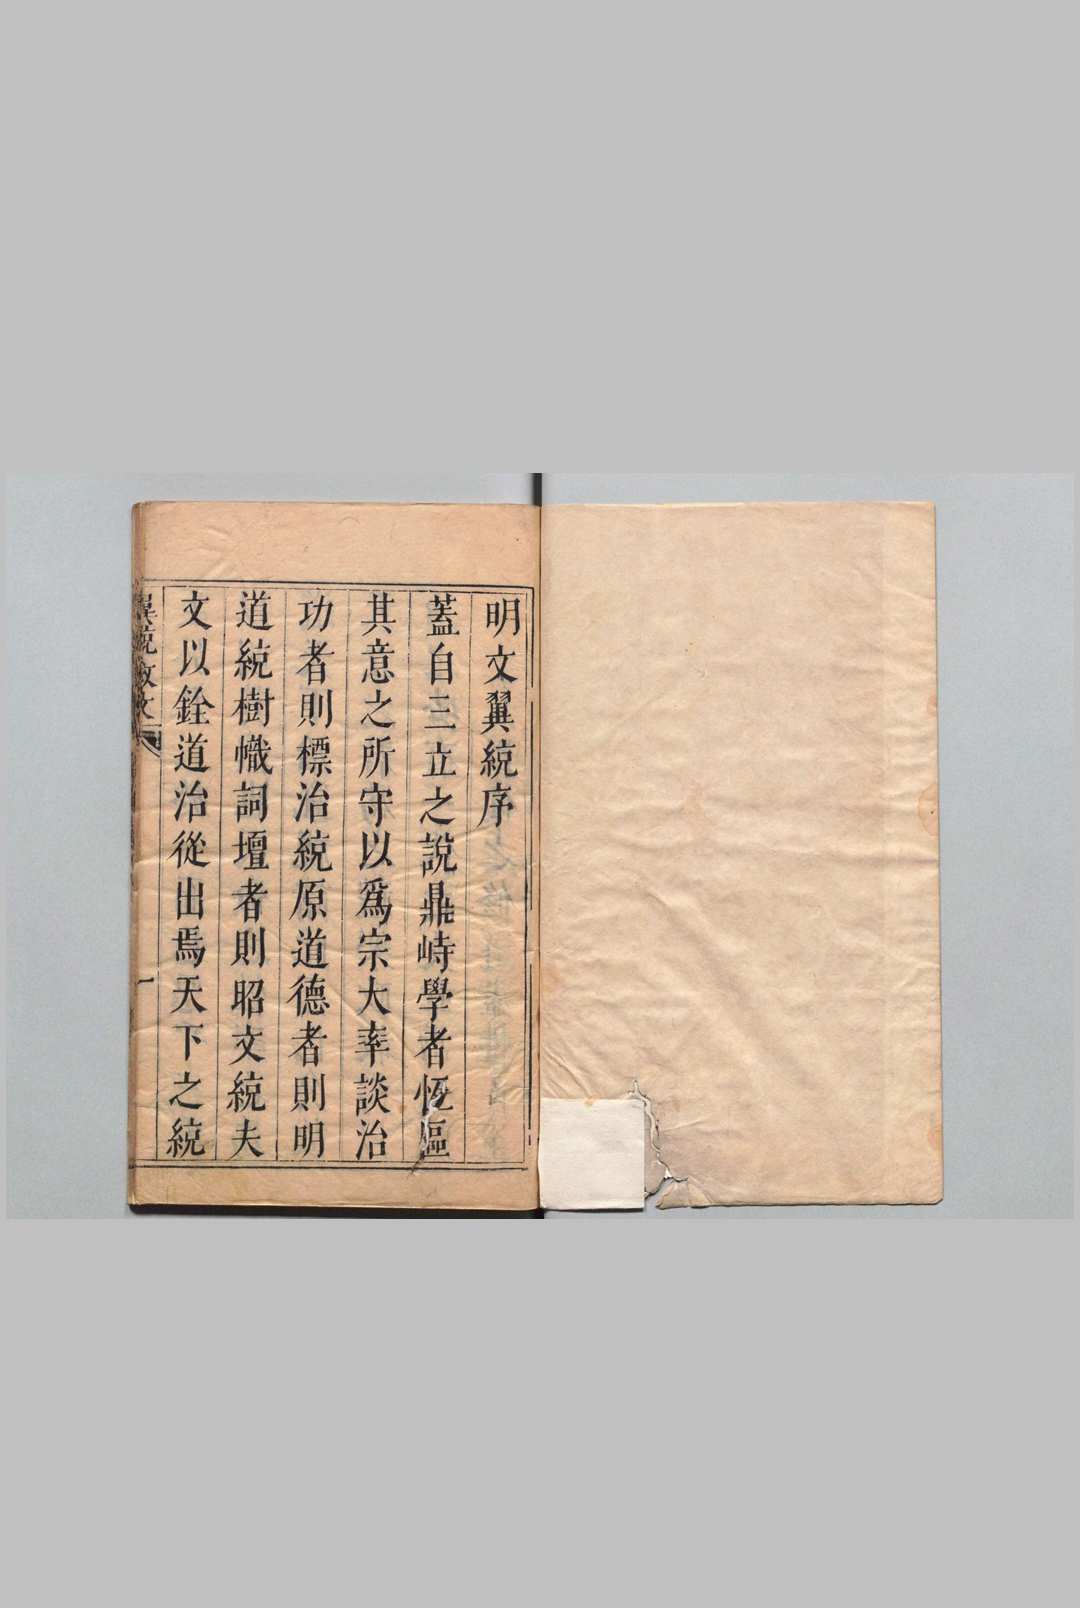 明文翼統序
蓋自三立之說鼎峙學者恆區
其意之所守以爲宗大率談治
功者則標治統原道德者則明
道統樹幟詞壇者則昭文統夫
文以銓道治從出焉天下之統
翼統敘文
一